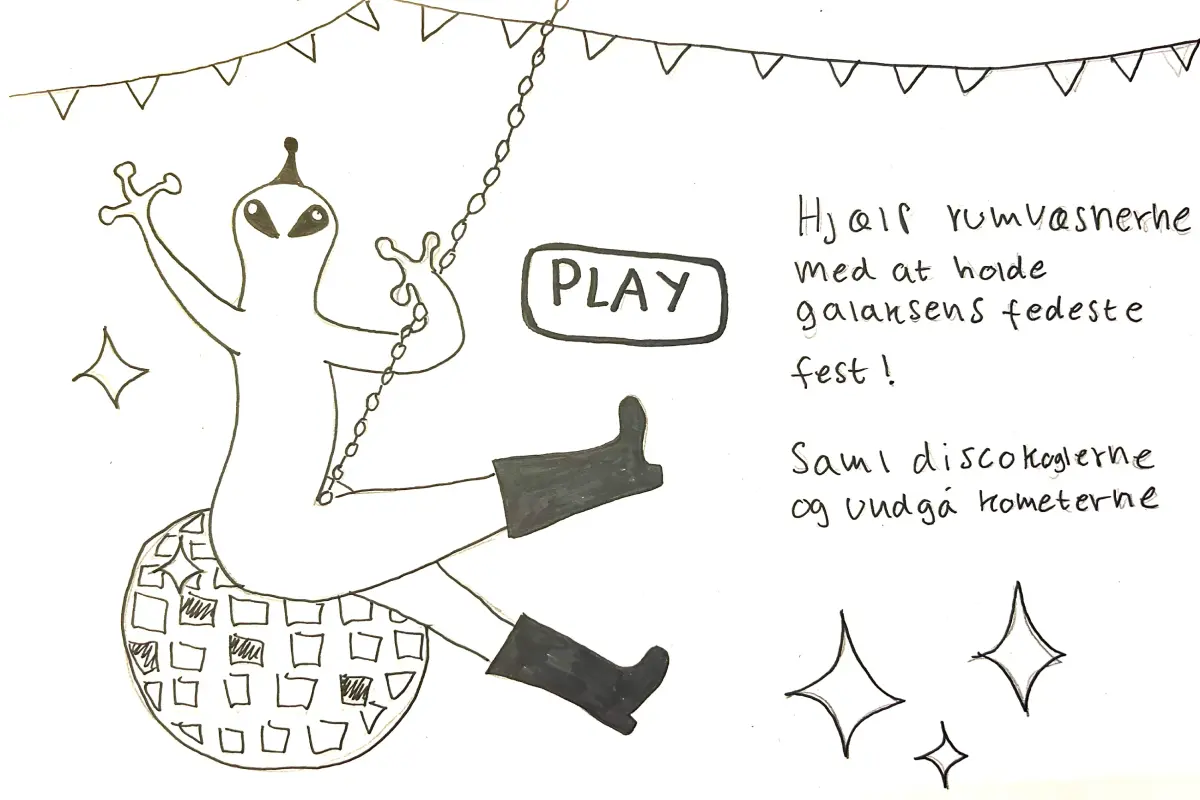 PLAY
Hjælp rumvæsnerne
med at holde
galaksens fedeste
fest!
Saml discokuglerne
og undgå kometerne